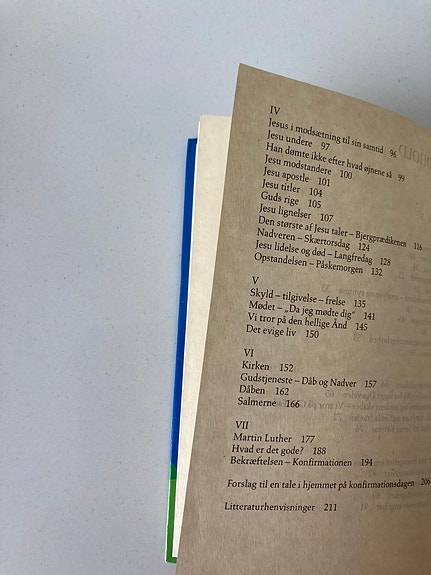 IV
Jesus i modsætning til sin samtid 96
Jesu undere 97
Han dømte ikke efter hvad øjnene så 99
Jesu modstandere 100
Jesu apostle 101
Jesu titler 104
Guds rige 105
Jesu lignelser 107
Den største af Jesu taler – Bjergprædikenen 116
Nadveren – Skærtorsdag 124
Jesu lidelse og død – Langfredag 128
Opstandelsen – Påskemorgen 132
V
Skyld – tilgivelse – frelse 135
Mødet – „Da jeg mødte dig" 141
Vi tror på den hellige Ånd 145
Det evige liv 150
VI
Kirken 152
Gudstjeneste – Dåb og Nadver 157
Dåben 162
Salmerne 166
VII
Martin Luther 177
Hvad er det gode? 188
Bekræftelsen – Konfirmationen 194
Forslag til en tale i hjemmet på konfirmationsdagen 206
Litteraturhenvisninger 211